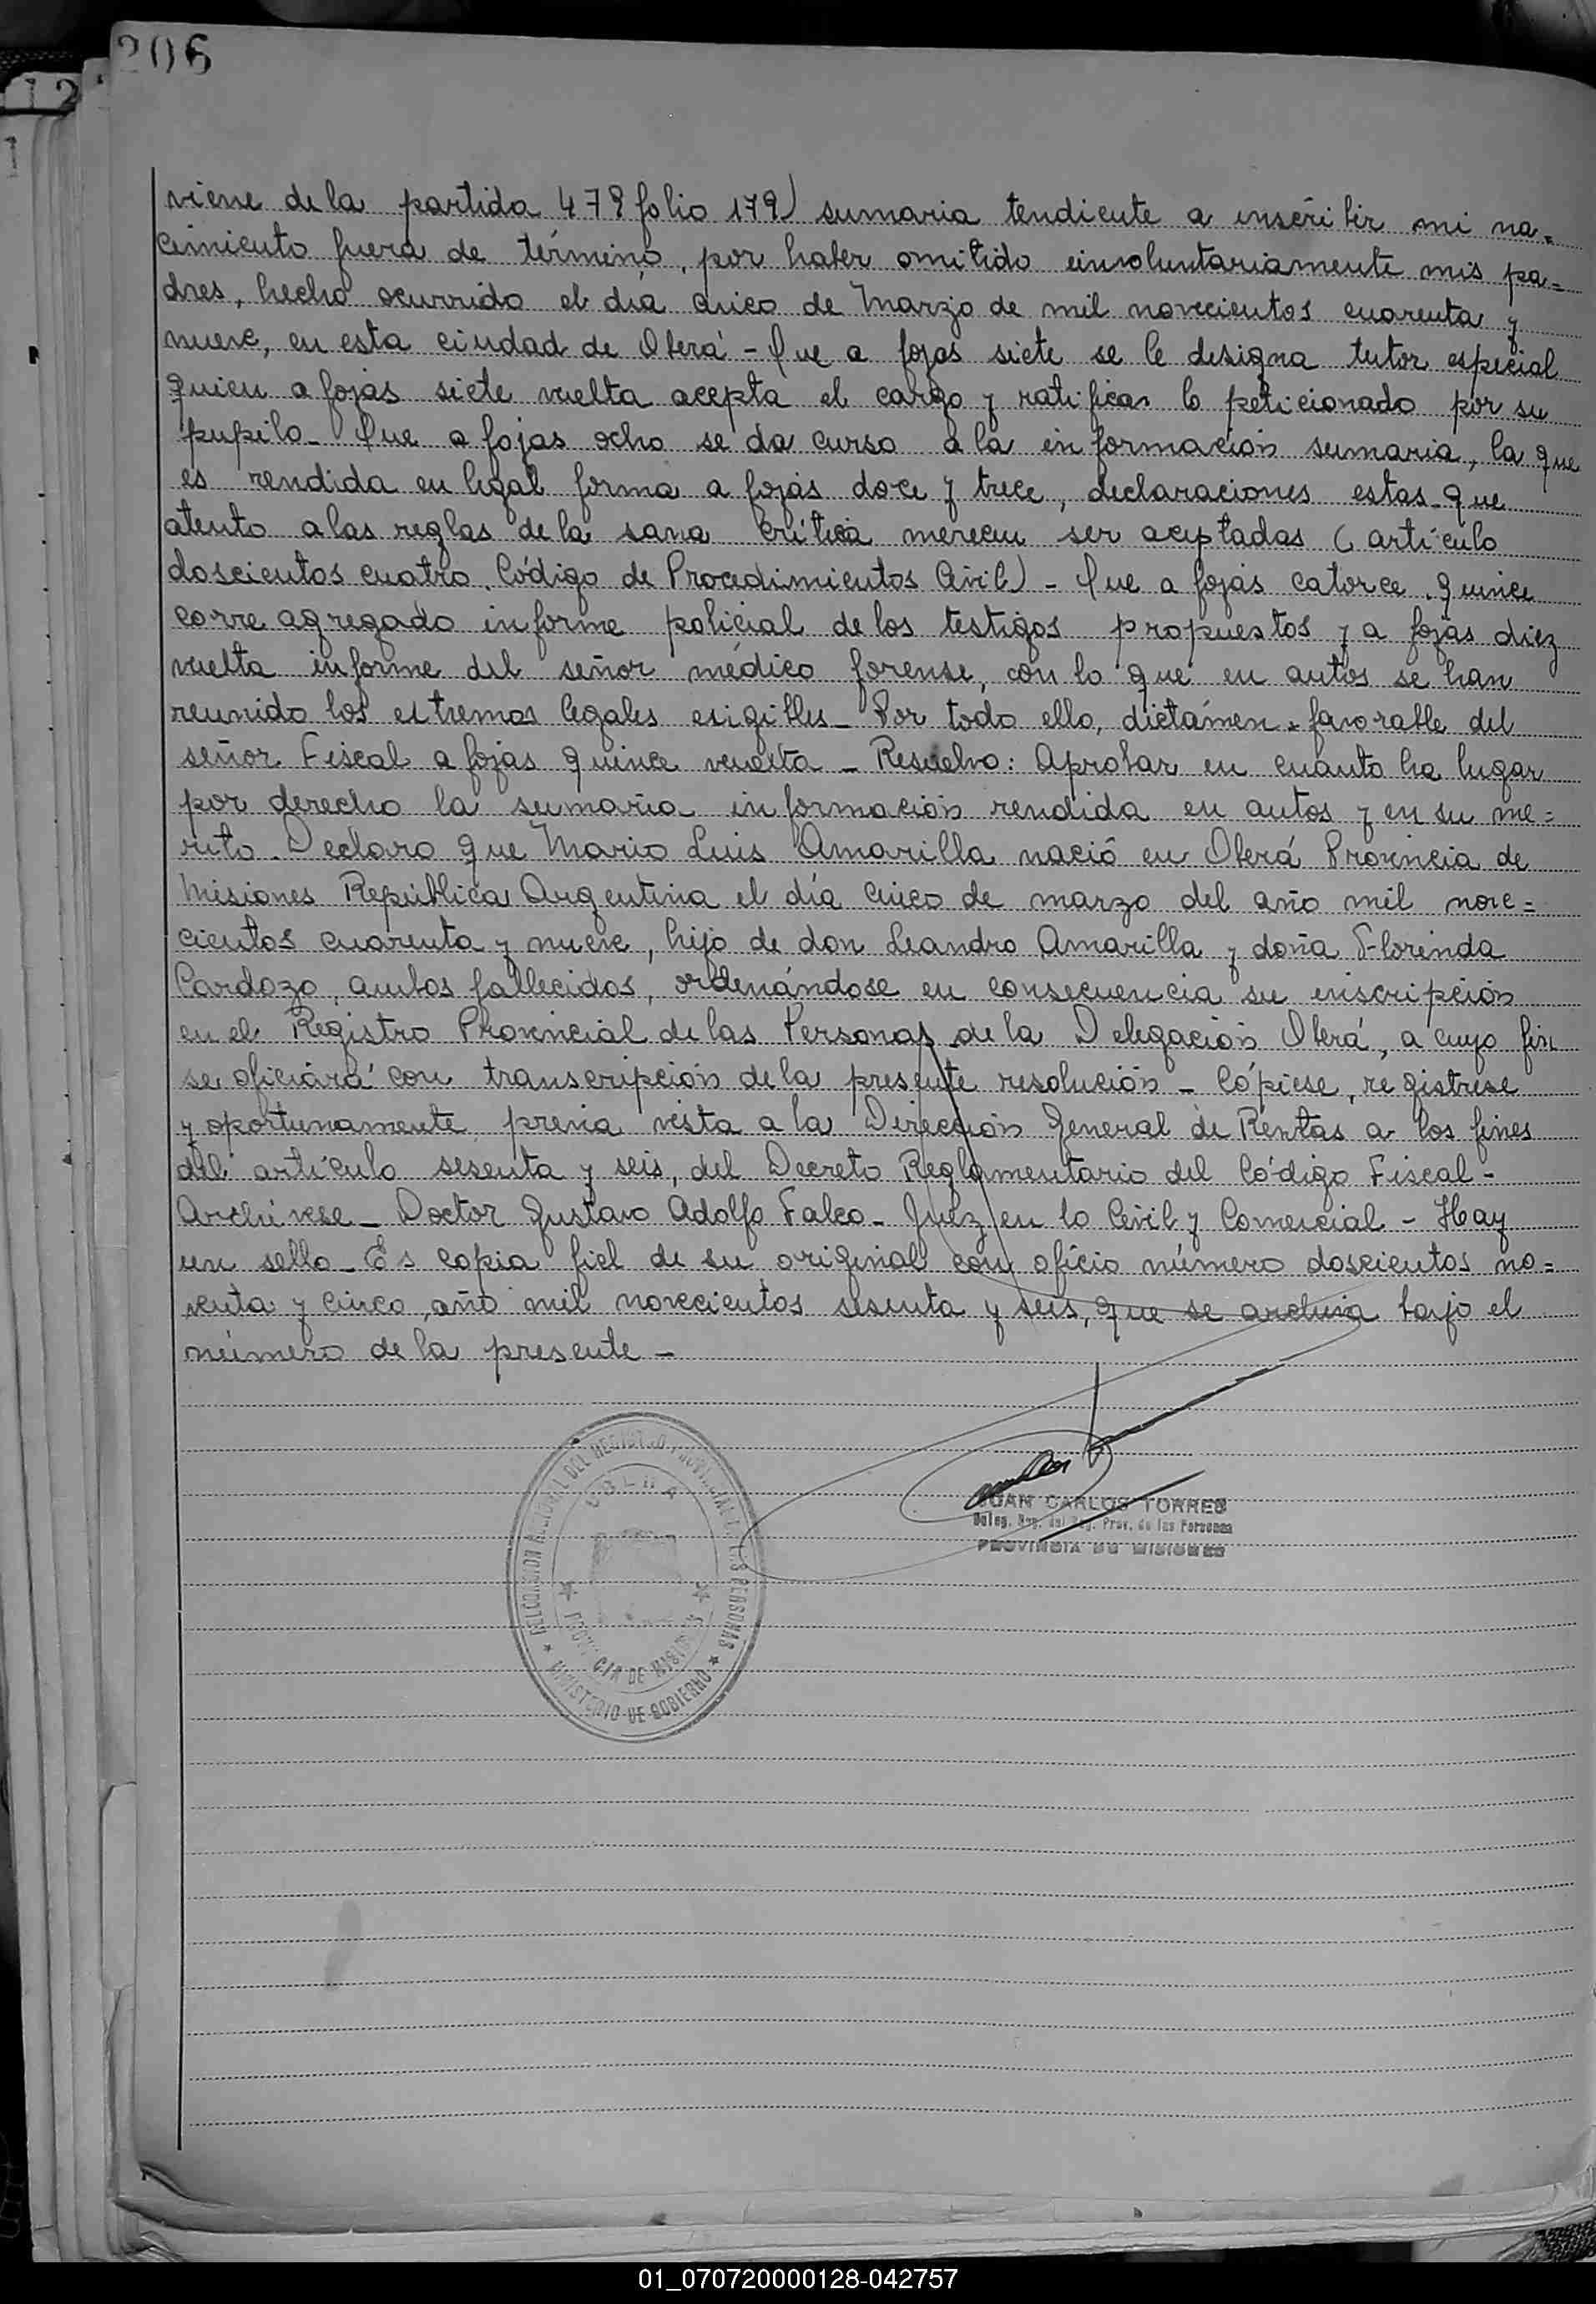 206
12
1
viene de la partida 479 folio 179) sumaria tendiente a inscribir mi na=
cimiento fuera de término, por haber omitido einvoluntariamente mis pa=
dres, hecho ocurrido el día cinco de Marzo de mil novecientos cuarenta y
nueve, en esta ciudad de Oberá - Que a fojas siete se le designa tutor especial
quien a fojas siete vuelta acepta el cargo y ratifica lo peticionado por su
pupilo - Que a fojas ocho se da curso a la información sumaria, la que
es rendida en legal forma a fojas doce y trece, declaraciones estas que
atento a las reglas de la sana crítica merecen ser aceptadas (artículo
doscientos cuatro. Código de Procedimientos Civil) - Que a fojas catorce, quince
corre agregado informe policial de los testigos propuestos y a fojas diez
vuelta informe del señor médico forense, con lo que en autos se han
reunido los estremos legales esigibles - Por todo ello, dictámen favorable del
señor Fiscal a fojas quince vuelta - Resuelvo: Aprobar en cuanto ha lugar
por derecho la sumaria información rendida en autos y en su me=
rito. Declaro que Mario Luis Amarilla nació en Oberá Provincia de
Misiones República Argentina el día cinco de marzo del año mil nove=
cientos cuarenta y nueve, hijo de don Leandro Amarilla y doña Florinda
Cardozo, ambos fallecidos, ordenándose en consecuencia su inscripción
en el Registro Provincial de las Personas de la Delegación Oberá, a cuyo fin
se oficiará con transcripción de la presente resolución - Cópiese, registrese
y oportunamente previa vista a la Dirección General de Rentas a los fines
del artículo sesenta y seis, del Decreto Reglamentario del Código Fiscal -
Archívese - Doctor Gustavo Adolfo Falco - Juez en lo Civil y Comercial - Hay
un sello - Es copia fiel de su original con oficio número doscientos no=
venta y cinco, año mil novecientos sesenta y seis, que se archiva bajo el
número de la presente -
DEL REGISTRO PROVINCIAL DE LAS PERSONAS
MINISTERIO DE GOBIERNO
OBERA
PROVINCIA DE MISIONES
JUAN CARLOS TORRES
Deleg. Reg. del Reg. Prov. de las Personas
PROVINCIA DE MISIONES
01_070720000128-042757